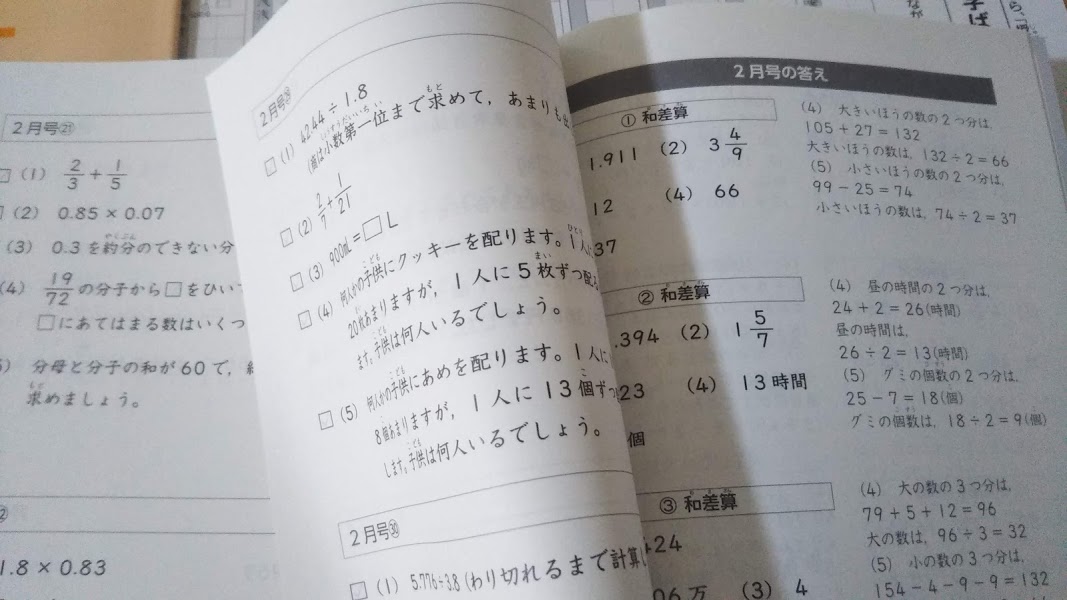 2月号㉑
(1) 2/3 + 1/5
(2) 0.85 × 0.07
(3) 0.3を約分のできない分
(4) 19/72 の分子から□をひい
□にあてはまる数はいくつ
分母と分子の和が60で,
求めましょう。
1.8 × 0.83
2月号
□ (1) 42.44 ÷ 1.8
(商は小数第一位まで求めて, あまりも出
□ (2) 2/7 + 1/21
□ (3) 900mL = □ L
□ (4) 何人かの子供にクッキーを配ります。1人に
20枚あまりますが, 1人に5枚ずつ配る
ます。子供は何人いるでしょう。
□ (5) 何人かの子供にあめを配ります。1人に
8個あまりますが, 1人に13個ずつ
します。子供は何人いるでしょう。
2月号㉚
□ (1) 5.776÷3.8 (わり切れるまで計算し
2月号の答え
① 和差算
1.911 (2) 3 4/9
12 (4) 66
37
(4) 大きいほうの数の2つ分は,
105 + 27 = 132
大きいほうの数は, 132 ÷ 2 = 66
(5) 小さいほうの数の2つ分は,
99 − 25 = 74
小さいほうの数は, 74 ÷ 2 = 37
② 和差算
.394 (2) 1 5/7
23 (4) 13時間
個
(4) 昼の時間の2つ分は,
24 + 2 = 26(時間)
昼の時間は,
26 ÷ 2 = 13(時間)
(5) グミの個数の2つ分は,
25 − 7 = 18(個)
グミの個数は, 18 ÷ 2 = 9(個)
③ 和差算
24
06万 (3) 4
(4) 大の数の3つ分は,
79 + 5 + 12 = 96
大の数は, 96 ÷ 3 = 32
(5) 小の数の3つ分は,
154 − 4 − 9 − 9 = 132